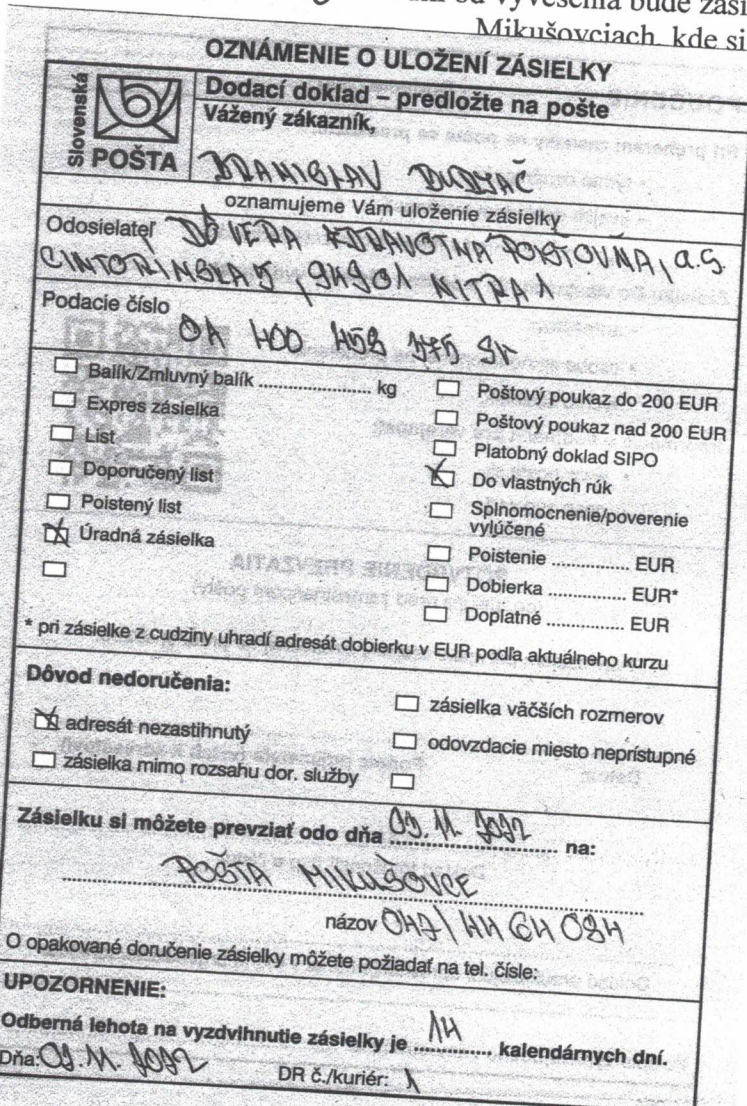 od vyvesenia bude zási
Mikušovciach, kde si
OZNÁMENIE O ULOŽENÍ ZÁSIELKY
Slovenská
POŠTA
Dodací doklad – predložte na pošte
Vážený zákazník,
BRANISLAV DUDJAČ
oznamujeme Vám uloženie zásielky
Odosielateľ DÔVERA ZDRAVOTNÁ POISŤOVŇA, a.s.
CINTORÍNSKA 5, 94901 NITRA 1
Podacie číslo
Balík/Zmluvný balík ........................ kg
Expres zásielka
List
Doporučený list
Poistený list
Úradná zásielka
Poštový poukaz do 200 EUR
Poštový poukaz nad 200 EUR
Platobný doklad SIPO
Do vlastných rúk
Splnomocnenie/poverenie
vylúčené
Poistenie ................ EUR
Dobierka ................ EUR*
Doplatné ................ EUR
* pri zásielke z cudziny uhradí adresát dobierku v EUR podľa aktuálneho kurzu
Dôvod nedoručenia:
adresát nezastihnutý
zásielka mimo rozsahu dor. služby
zásielka väčších rozmerov
odovzdacie miesto neprístupné
Zásielku si môžete prevziať odo dňa 09.11.2022 na:
POŠTA MIKUŠOVCE
názov 047/44 64 084
O opakované doručenie zásielky môžete požiadať na tel. čísle:
UPOZORNENIE:
Odberná lehota na vyzdvihnutie zásielky je 14 kalendárnych dní.
Dňa: 09.11.2022 DR č./kuriér: 1